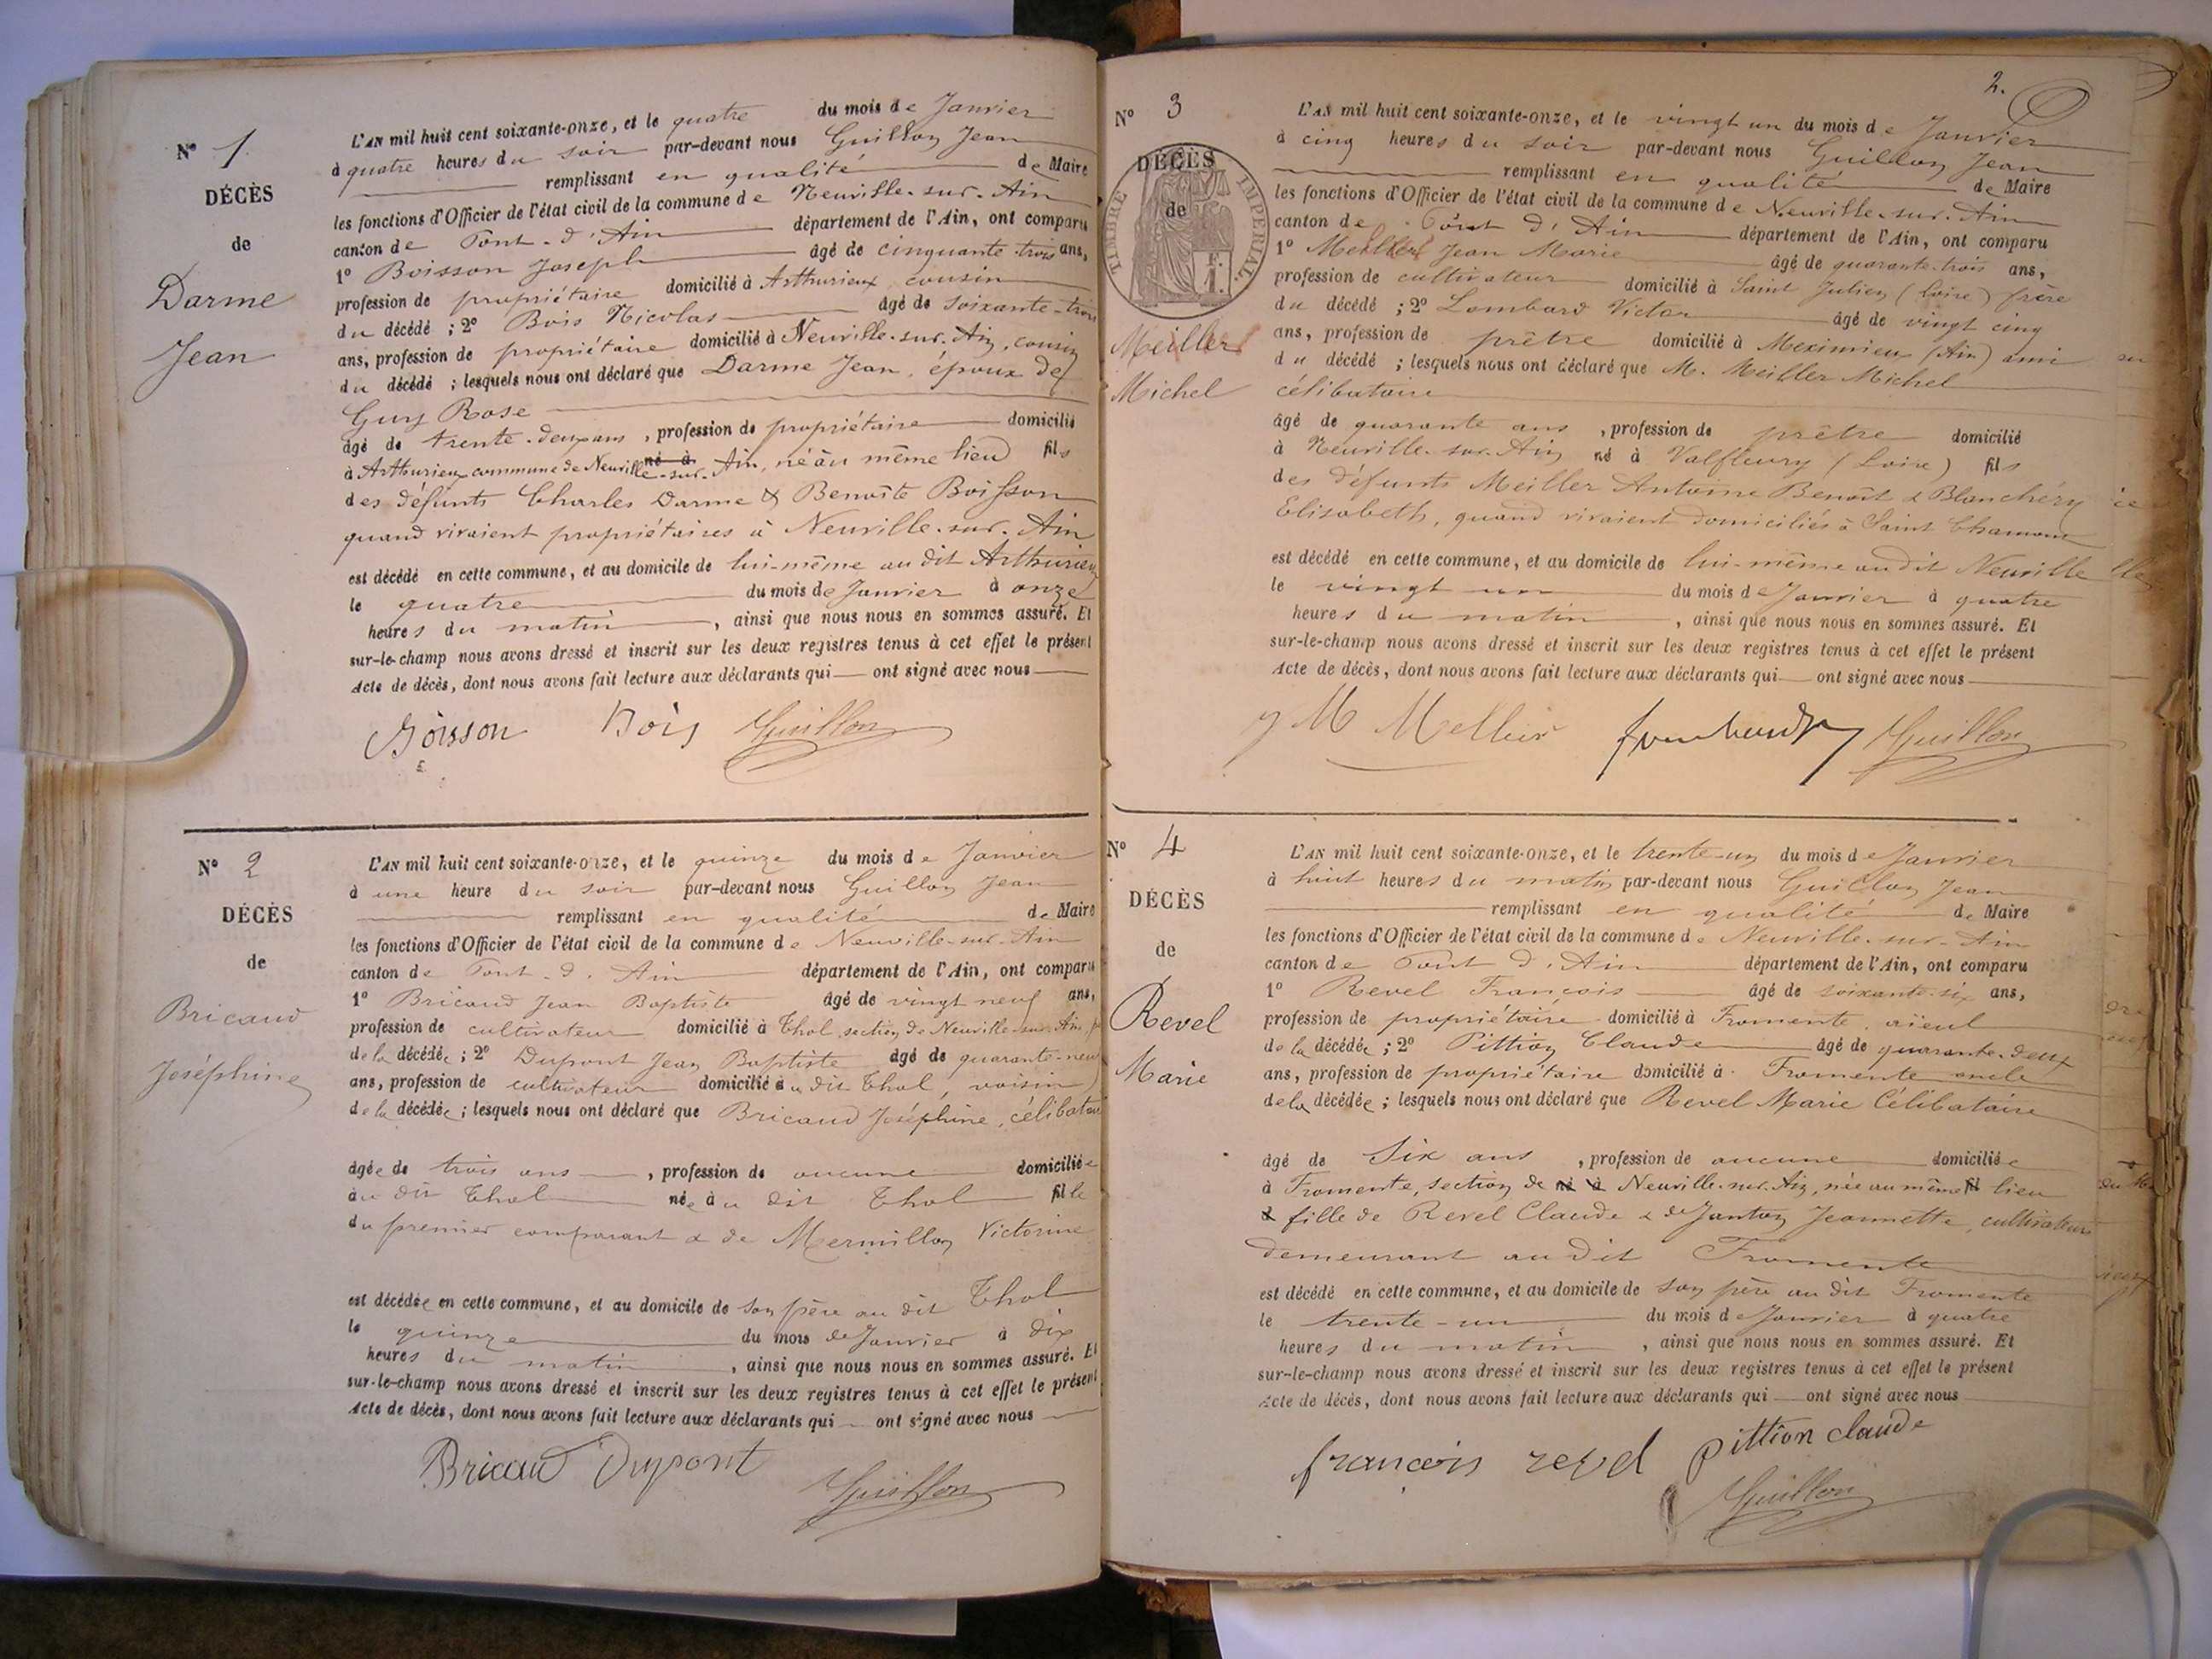 N° 1
DÉCÈS
de
Darme
Jean
L'AN mil huit cent soixante-onze, et le quatre du mois de Janvier
à quatre heures du soir par-devant nous Guillon Jean
remplissant en qualité de Maire
les fonctions d'Officier de l'état civil de la commune de Neuville-sur-Ain
canton de Pont-d'Ain département de l'Ain, ont comparu
1° Boisson Joseph âgé de cinquante-trois ans,
profession de propriétaire domicilié à Arthurieux cousin
du décédé ; 2° Bois Nicolas âgé de soixante-trois
ans, profession de propriétaire domicilié à Neuville-sur-Ain, cousin
du décédé ; lesquels nous ont déclaré que Darme Jean, époux de
Guy Rose
âgé de trente-deux ans, profession de propriétaire domicilié
à Arthurieux commune de Neuville-sur-Ain, né à au même lieu fils
des défunts Charles Darme & Benoîte Boisson
quand vivaient propriétaires à Neuville-sur-Ain
est décédé en cette commune, et au domicile de lui-même au dit Arthurieux
le quatre du mois de Janvier à onze
heures du matin, ainsi que nous nous en sommes assuré. Et
sur-le-champ nous avons dressé et inscrit sur les deux registres tenus à cet effet le présent
Acte de décès, dont nous avons fait lecture aux déclarants qui ont signé avec nous
Boisson Bois Guillon
N° 2
DÉCÈS
de
Bricaud
Joséphine
L'AN mil huit cent soixante-onze, et le quinze du mois de Janvier
à une heure du soir par-devant nous Guillon Jean
remplissant en qualité de Maire
les fonctions d'Officier de l'état civil de la commune de Neuville-sur-Ain
canton de Pont-d'Ain département de l'Ain, ont comparu
1° Bricaud Jean Baptiste âgé de vingt neuf ans,
profession de cultivateur domicilié à Thol section de Neuville-sur-Ain,
de la décédée ; 2° Dupont Jean Baptiste âgé de quarante-neuf
ans, profession de cultivateur domicilié au dit Thol, voisin
de la décédée ; lesquels nous ont déclaré que Bricaud Joséphine, célibataire
âgée de trois ans, profession de aucune domiciliée
au dit Thol née au dit Thol fille
du premier comparant & de Mermillon Victorine
est décédée en cette commune, et au domicile de son père au dit Thol
le quinze du mois de Janvier à dix
heures du matin, ainsi que nous nous en sommes assuré. Et
sur-le-champ nous avons dressé et inscrit sur les deux registres tenus à cet effet le présent
Acte de décès, dont nous avons fait lecture aux déclarants qui ont signé avec nous
Bricaud Dupont
Guillon
2.
N° 3
DÉCÈS
de
TIMBRE IMPERIAL
Meiller
Michel
L'AN mil huit cent soixante-onze, et le vingt un du mois de Janvier
à cinq heures du soir par-devant nous Guillon Jean
remplissant en qualité de Maire
les fonctions d'Officier de l'état civil de la commune de Neuville-sur-Ain
canton de Pont d'Ain département de l'Ain, ont comparu
1° Jean Marie âgé de quarante-trois ans,
profession de cultivateur domicilié à Saint Julien (Loire) frère
du décédé ; 2° Lombard Victor âgé de vingt cinq
ans, profession de prêtre domicilié à Meximieux (Ain) ami
du décédé ; lesquels nous ont déclaré que M. Meiller Michel
célibataire
âgé de quarante ans, profession de prêtre domicilié
à Neuville-sur-Ain né à Valfleury (Loire) fils
des défunts Meiller Antoine Benoît & Blanchéry
Elisabeth, quand vivaient domiciliés à Saint Chamond
est décédé en cette commune, et au domicile de lui-même au dit Neuville
le vingt un du mois de Janvier à quatre
heures du matin, ainsi que nous nous en sommes assuré. Et
sur-le-champ nous avons dressé et inscrit sur les deux registres tenus à cet effet le présent
Acte de décès, dont nous avons fait lecture aux déclarants qui ont signé avec nous
J M Mellier Guillon
N° 4
DÉCÈS
de
Revel
Marie
L'AN mil huit cent soixante-onze, et le trente-un du mois de Janvier
à huit heures du matin par-devant nous Guillon Jean
remplissant en qualité de Maire
les fonctions d'Officier de l'état civil de la commune de Neuville-sur-Ain
canton de Pont d'Ain département de l'Ain, ont comparu
1° Revel François âgé de soixante-six ans,
profession de propriétaire domicilié à Fromente, aïeul
de la décédée ; 2° Pittion Claude âgé de quarante-deux
ans, profession de propriétaire domicilié à Fromente oncle
de la décédée ; lesquels nous ont déclaré que Revel Marie Célibataire
âgé de Six ans, profession de aucune domiciliée
à Fromente, section de né à Neuville-sur-Ain, née au même fil lieu
d fille de Revel Claude & de Janton Jeannette, cultivateurs
demeurant au dit Fromente
est décédé en cette commune, et au domicile de son père au dit Fromente
le trente-un du mois de Janvier à quatre
heures du matin, ainsi que nous nous en sommes assuré. Et
sur-le-champ nous avons dressé et inscrit sur les deux registres tenus à cet effet le présent
Acte de décès, dont nous avons fait lecture aux déclarants qui ont signé avec nous
françois revel pittion claude
Guillon